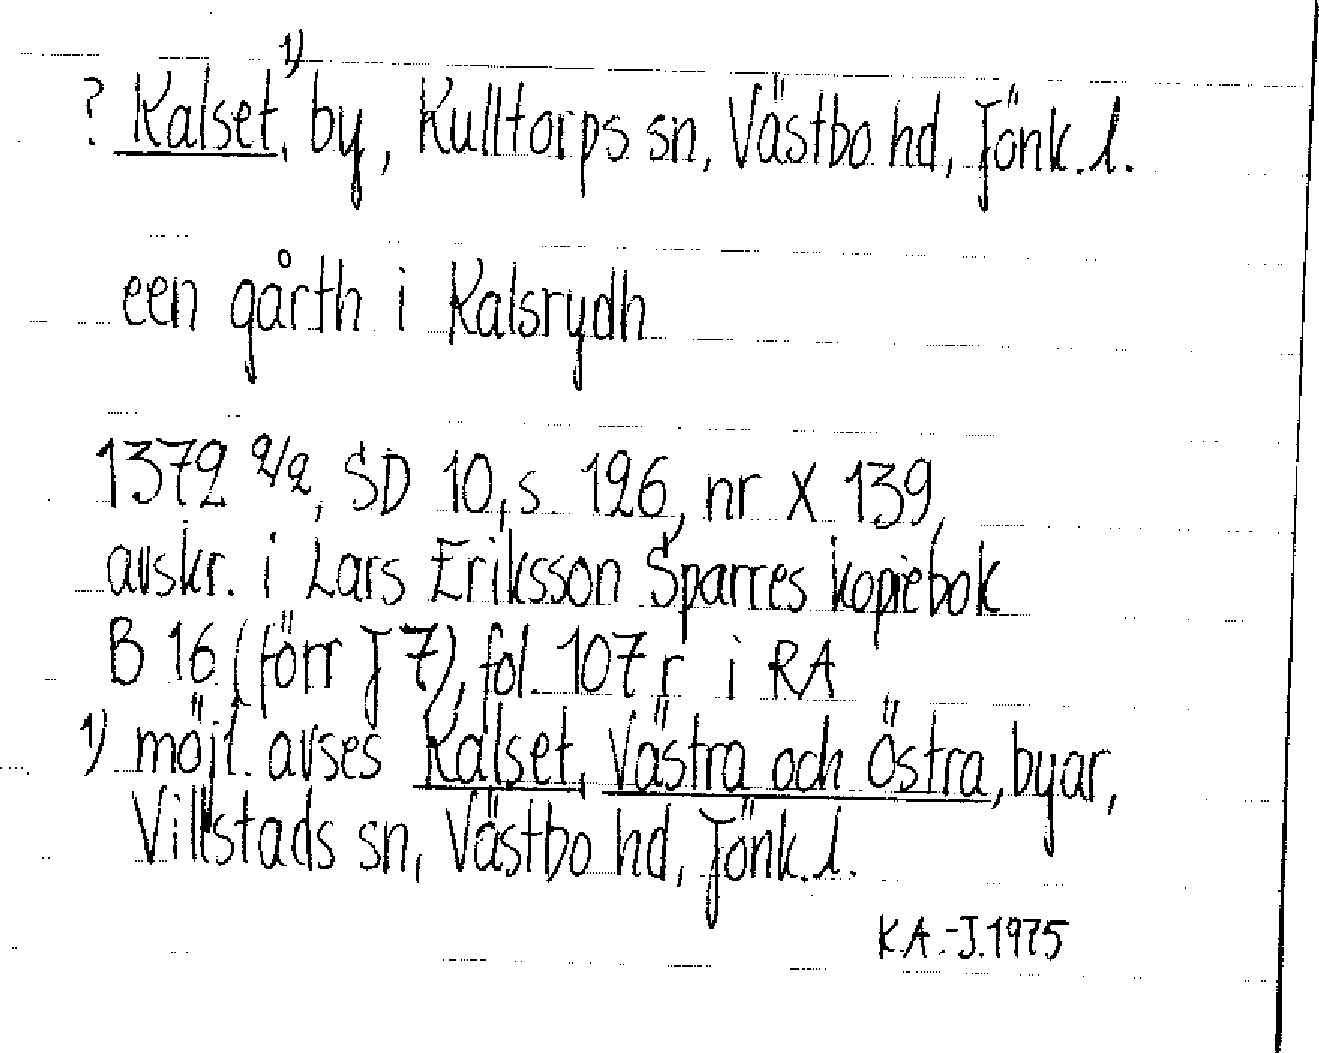 ? Kalset,¹⁾ by, Kulltorps sn, Västbo hd, Jönk. l.
een gårth i Kalsrydh
1372 2/2, SD 10, s. 126, nr X 139,
avskr. i Lars Eriksson Sparres kopiebok
B 16 (förr J 7), fol. 107 r i RA
1) möjl. avses Kalset, Västra och Östra, byar,
Villstads sn, Västbo hd, Jönk. l.
K.A.-J. 1975